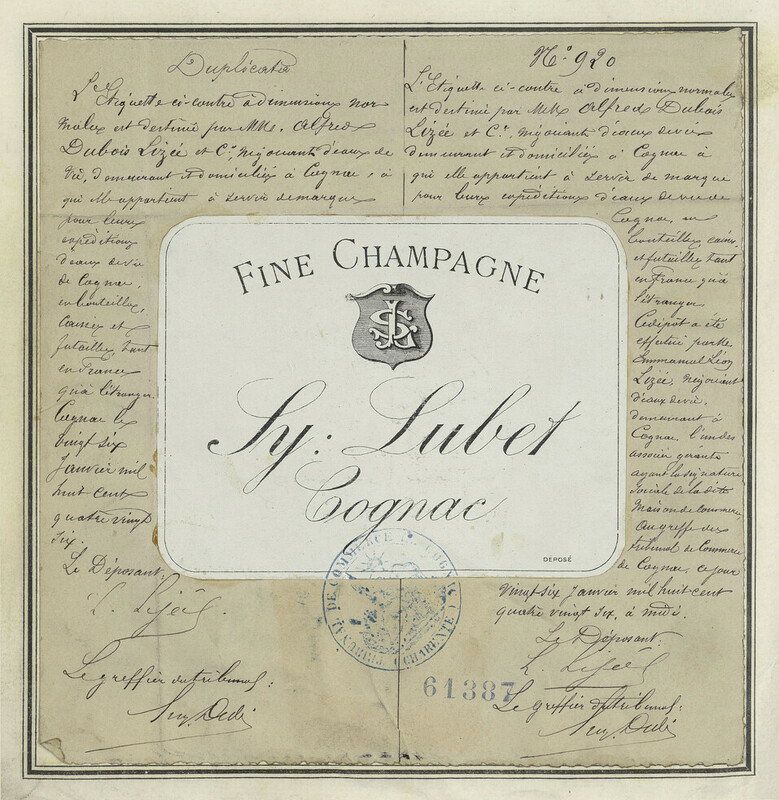 Duplicata
L'Etiquette ci-contre à dimensions nor
males est destinée par MM. Alfred
Dubois Lizée et Cie, négociants d'eaux de
vie, demeurant et domiciliés à Cognac, à
qui elle appartient à servir de marque
pour leurs
expéditions
d'eaux de vie
de Cognac,
en bouteilles,
caisses et
futailles, tant
en France
qu'à l'étranger.
Cognac le
vingt six
Janvier mil
huit cent
quatre vingt
six.
Le Déposant:
L. Lizée.
Le greffier du tribunal:
N° 920
L'Etiquette ci-contre à dimensions normales
est destinée par MM. Alfred Dubois
Lizée et Cie, négociants d'eaux de vie
demeurant et domiciliés à Cognac à
qui elle appartient à servir de marque
pour leurs expéditions d'eaux de vie de
Cognac, en
bouteilles, caisses,
et futailles tant
en France qu'à
l'étranger
Ce dépôt a été
effectué par Mr
Emmanuel Léon
Lizée, négociant
d'eaux de vie,
demeurant à
Cognac l'un des
associés gérants
ayant la signature
sociale de la dite
Maison de Commerce,
au greffe du
tribunal de Commerce
de Cognac, ce jour
vingt six Janvier mil huit cent
quatre vingt six, à midi.
Le Déposant:
L. Lizée
Le greffier du tribunal:
FINE CHAMPAGNE
Sy: Lubet
Cognac
DÉPOSÉ
TRIBUNAL DE COMMERCE DE COGNAC (CHARENTE)
61387